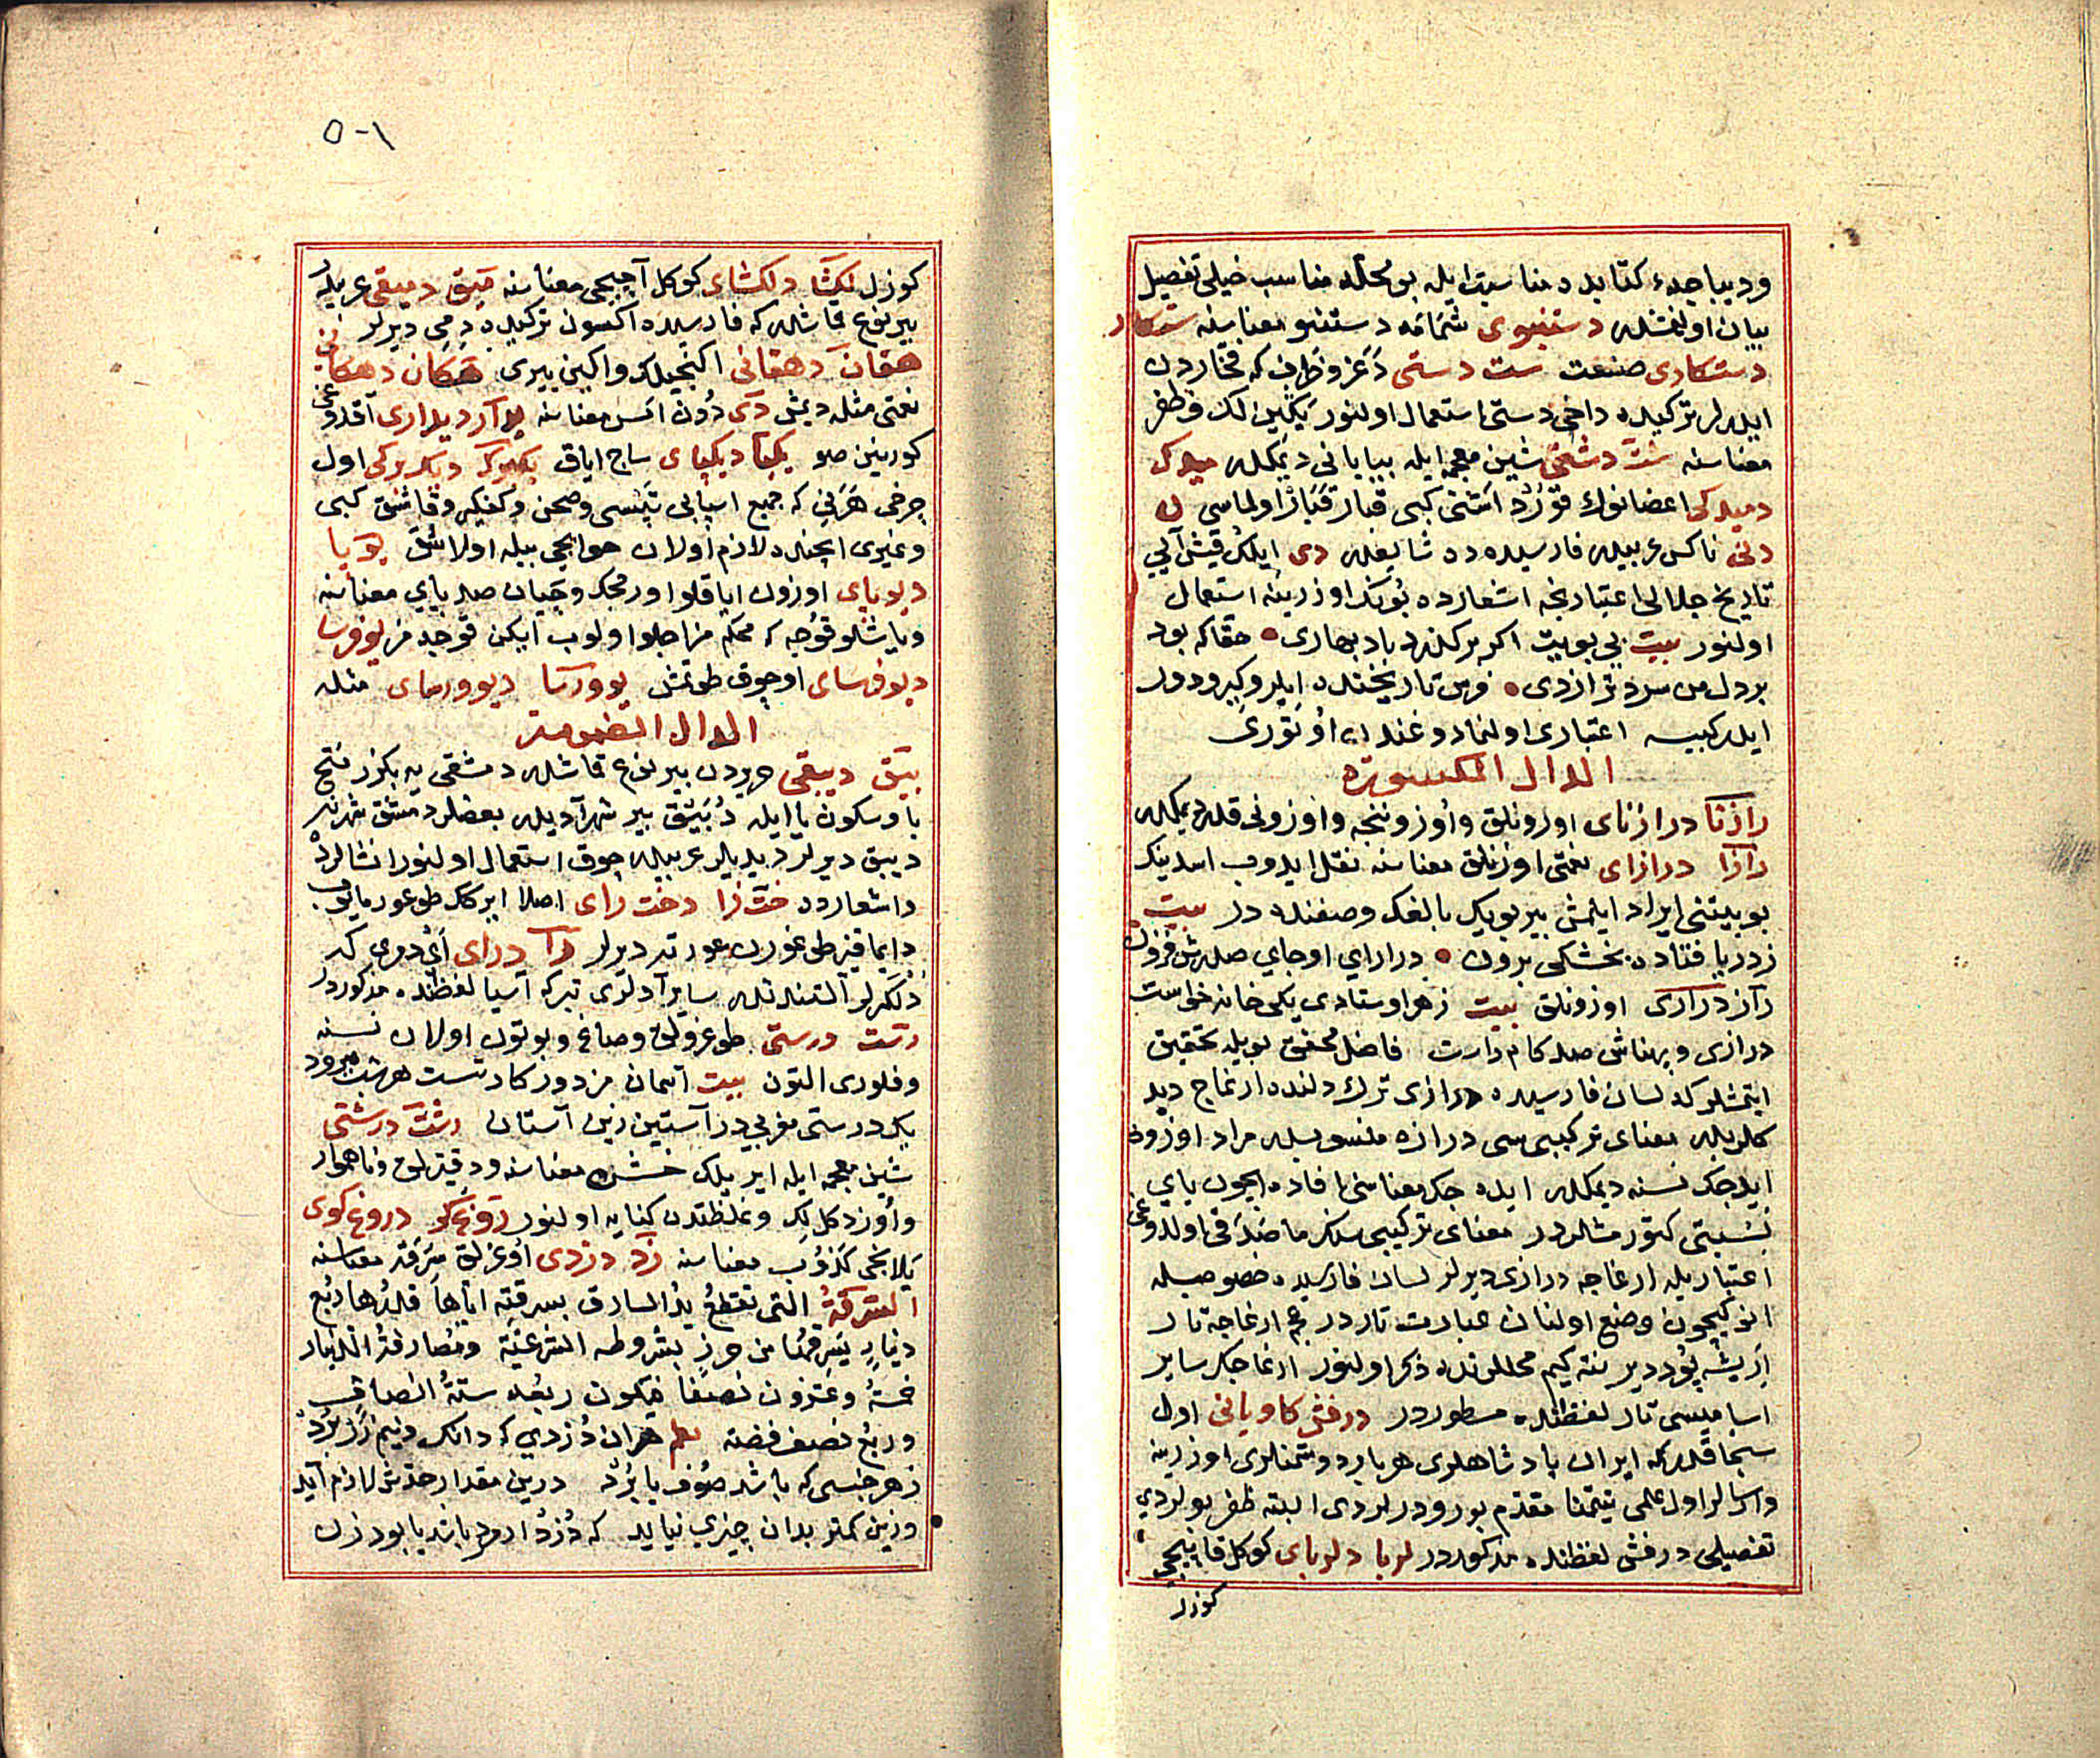 ودیباجهٔ کتابده مناسبت ایله بو محلده مناسب خیلی تفصیل
بیان اولنمشدر دستنبوی شمامه دستنبو معناسنه
دستکاری صنعت ست دستی دغز وظرف که فخاردن
ایدرلر ترکیده داخی دستی استعمال اولنور یکین الک وظفر
معناسنه شت دشتی شین معجمه ایله بیابانی دیمکدر
اعضانوك
دنی ناکس عربیدر فارسیده ده شایعدر دی ایلك قیش آیی
تاریخ جلالی اعتبارنجه اشعارده بونك اوزرینه استعمال
اولنور بیت بی بویت اکر برکذرد باد بهاری حقا که بود
بر دل من سرد تر از دی فرس تاریخنده ایلرو کیرو دور
ایدر کبیسه اعتباری اولنماد وغندن اوتوری
الدال المکسورة
رازنا درازنای اوزونلق و اوزوننجه و اوزونی قدر دیمکدر
رازا درازای نعمتی اوزنلق معناسنه نقل ایدوب اسدینک
بو بیتنی ایراد ایلمش بیر بویک بالغک وصفنده در بیت
ز دریا فتاده بخشکی برون درازای اوجای صدرش فزون
راز درازی اوزونلق بیت زهر اوستادی یکی خانه خواست
درازی و پهناش صد کام راست فاضل محقق بویله تحقیق
ایتمشلر که لسان فارسیده درازی ترك دلنده ارغاج دید
کلریدر معنای ترکیبی سی درازه منسوبدر مراد اوزون
ایدجك نسنه دیمکدر ایده جك معناسنی افاده ایچون یای
نسبتی کتورمشلردر معنای ترکیبی سنك ماصدقی اولدوغی
اعتباریله ارغاجه درازی دیرلر لسان فارسیده خصوصیله
انوکیچون وضع اولنان عبارت تاردر عجم ارغاجه تار
اریشه پود دیر نته کیم محللرنده ذکر اولنور ارغاجك سایر
اسامیسی تار لفظنده مسطوردر درفش کاویانی اول
سنجاقدر که ایران پادشاهلری هر بار دوشمنلری اوزرینه
وارسالر اول علمی تیمنا مقدم یورودرلردی البته ظفر بولردی
تفصیلی درفش لفظنده مذکوردر لربا دلربای کوکل قاپیجی
کوزل
۵۰۱
کوزل لکشا دلکشای کوکل آچیجی معناسنه میق دمیقی عربیدر
بیر نوع قماشدر که فارسیده اکسون ترکیده دمی دیرلر
هقان دهقانی اکنجیلك و اکین ییری هکان دهکانی
نعتی مثله دیمش دی دون اکس معناسنه یدار دیداری
کورینن صو یکپا دیکپای ساج ایاق
چرخی هرنی که جمیع اسبابی تپسی وصحن و کفکیر وقاشق کبی
وغیری ایچنده لازم اولان حوایجی بیله اولا شق یوپا
دیوپای اوزون ایاقلو اورمجك
وياشلو قوجه که محکم مزاجلو اولوب ایکن قوجه مز یوفرسا
دیوفرسای اوجوق طوتمش یوورسا دیوورسای مثله
الدال المضمومة
بیق دبیقی حریردن بیر نوع قماشدر دمشقی یه بکزر فتح
با وسکون یا ایله دبیق بیر شهر آدیدر بعضلر دمشق شهرنه
دبیق دیرلر دیدیلر عربیدر چوق استعمال اولنور انشالرده
واشعارده خت زا دخت زای اصلا ایرکك طوغورمایوب
دایما قیز طوغورن عورته دیرلر را درای
در سایر آدلری تیرکه آسیا لفظنده مذکوردر
رست درستی طوغرولق وصاغ وبوتون اولان نسنه
وفلوری التون بیت آسمان مزدور کار تست هر شب میرود
یك درستی مغربی در آستین زین آستان رشت درشتی
شین معجمه ایله ایریلك خشن معناسنه ودقیزلق وناهموار
واوزدکل لك وغلظتدن کنایه اولنور روغ کو دروغ کوی
یلانجی کذوب معناسنه زد دزدی اوغرلق سرقه معناسنه
السرقة التی تقطع ید السارق بسرقته ایاها قدرها ربع
دینار یسرقها من حرز بشروطه الشرعیة ومصارفة الدینار
خمسة وعشرون نصفا فیکون ربعه ستة انصاف
وربع نصف فضه نظم هر ان دزدی که دانك ونیم زر برد
زهر جنسی که باشد صوف یا برد درین مقدار حدش لازم آید
وزین کمتر بدان چیزی نیاید که دزد ار مرد باشد یا بود زن